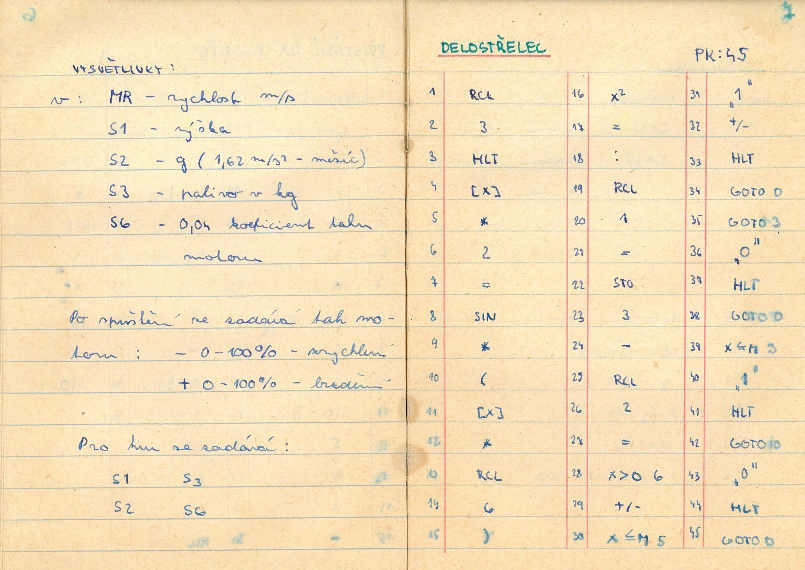 6
VYSVĚTLIVKY:
v: MR - rychlost m/s
S1 - výška
S2 - g (1,62 m/s² - měsíc)
S3 - palivo v kg
S6 - 0,04 koeficient tahu
motoru
Po spuštění se zadává tah mo-
toru: - 0-100% - zrychlení
+ 0-100% - brzdění
Pro hru se zadává:
S1 S3
S2 S6
7
DELOSTŘELEC
PK:45
1 RCL 16 x² 31 „1"
2 3 17 = 32 +/-
3 HLT 18 : 33 HLT
4 [X] 19 RCL 34 GOTO 0
5 * 20 1 35 GOTO 3
6 2 21 = 36 „0"
7 = 22 STO 37 HLT
8 SIN 23 3 38 GOTO 0
9 * 24 - 39 x≤M 3
10 ( 25 RCL 40 „1"
11 [X] 26 2 41 HLT
12 * 27 = 42 GOTO 0
RCL 28 x>0 6 43 „0"
14 6 29 +/- 44 HLT
15 ) 30 x≤M 5 45 GOTO 0